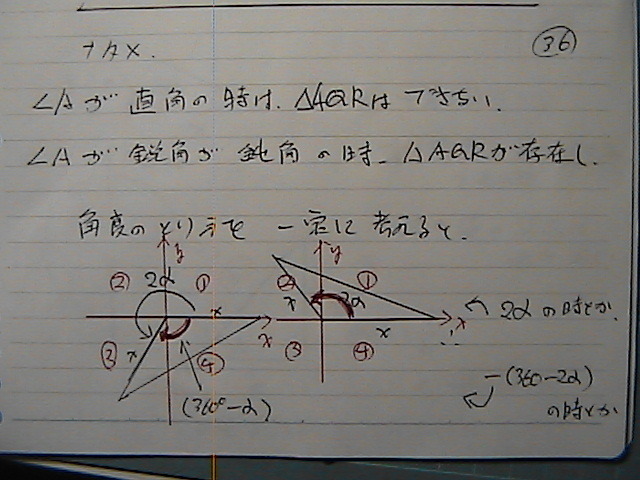 ナタメ. ㊱
∠Aが 直角の時は、△AQRはできない.
∠Aが 鋭角が 鈍角の時、△AQRが存在し.
角度のとり方を 一定に 考えると、
y y
② 2α ① ② ①
x x 2α
x x x ← 2αの時とか.
③ x ④ ③ ④
(360°-α)
-(360-2α)
の時とか